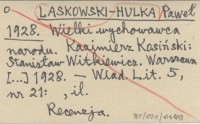 LASKOWSKI-HULKA Paweł
1928. Wielki wychowawca
narodu. Kazimierz Kasiński:
Stanisław Witkiewicz. Warszawa
[...] 1928. — Wiad. Lit. 5,
nr 21: , il.
Recenzja.